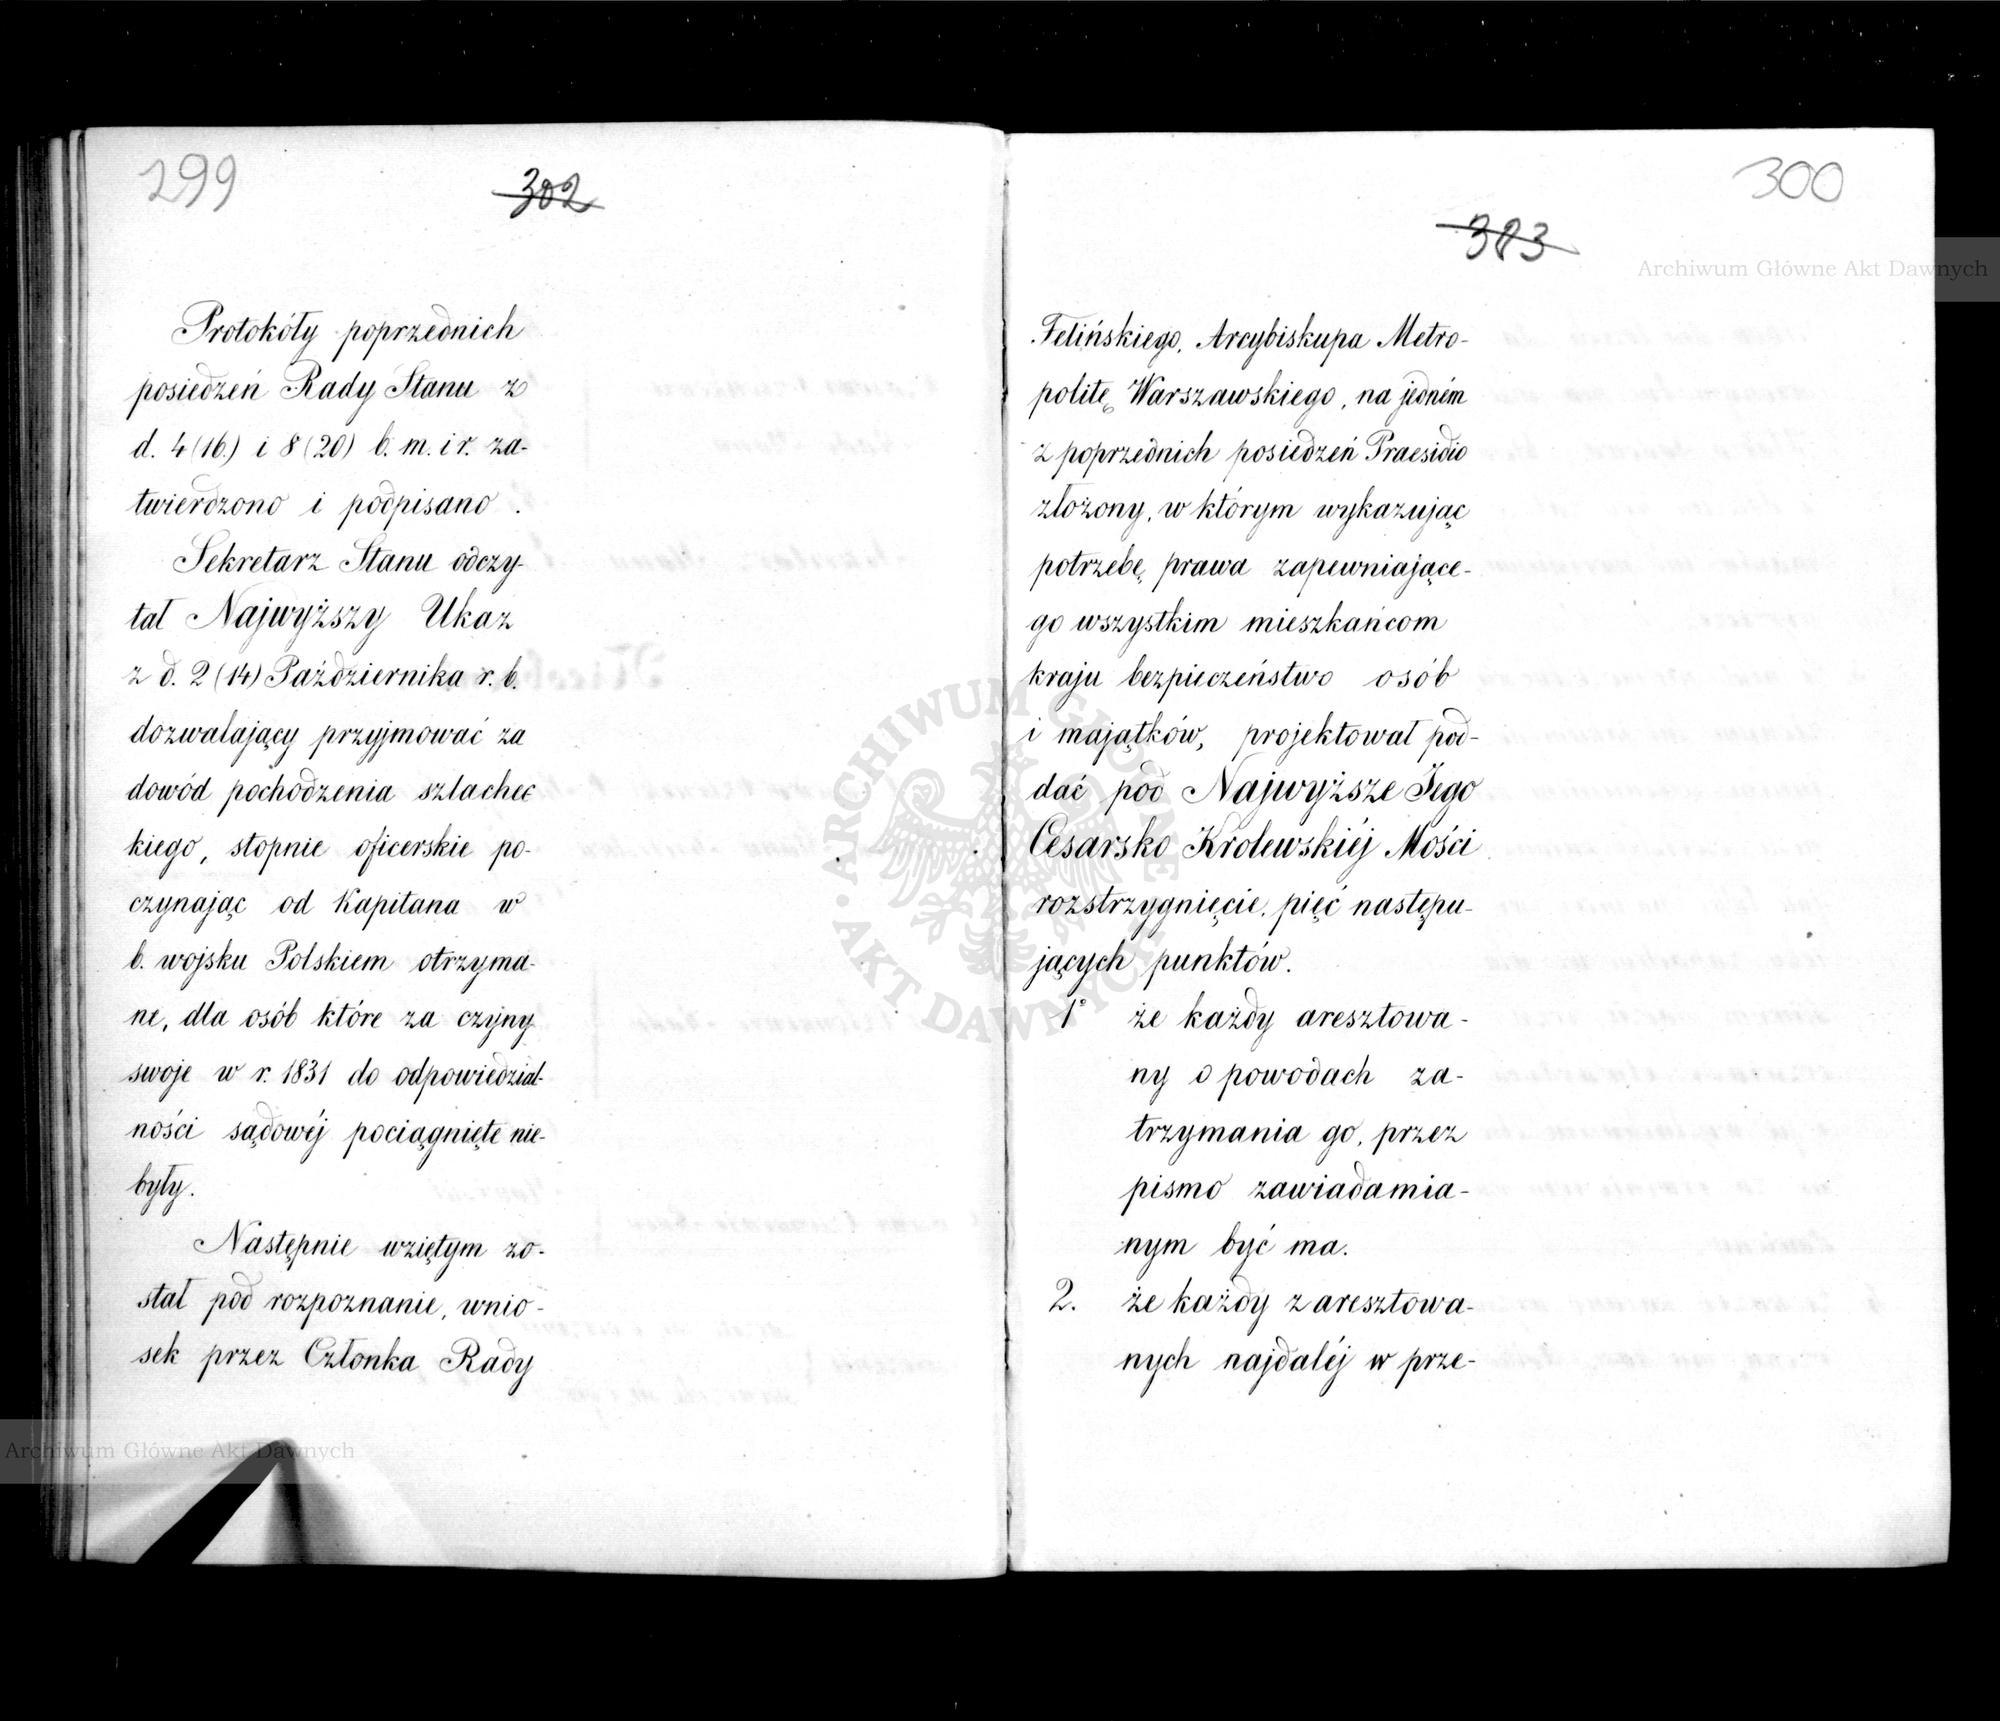 299
302
Protokóły poprzednich
posiedzeń Rady Stanu z
d. 4 (16.) i 8 (20) b. m. i r. za-
twierdzono i podpisano.
Sekretarz Stanu odczy-
tał Najwyższy Ukaz
z d. 2 (14) Października r. b.
dozwalający przyjmować za
dowód pochodzenia szlachec
kiego, stopnie oficerskie po-
czynając od Kapitana w
b. wojsku Polskiem otrzyma-
ne, dla osób które za czyny
swoje w r. 1831 do odpowiedzial-
ności sądowéj pociągnięte nie-
były.
Następnie wziętym zo-
stał pod rozpoznanie, wnio-
sek przez Członka Rady
300
303
Archiwum Główne Akt Dawnych
Felińskiego, Arcybiskupa Metro-
politę Warszawskiego, na jedném
z poprzednich posiedzeń Praesidio
złożony, w którym wykazując
potrzebę prawa zapewniające-
go wszystkim mieszkańcom
kraju bezpieczeństwo osób
i majątków, projektował pod-
dać pod Najwyższe Jego
Cesarsko Królewskiéj Mości
rozstrzygnięcie, pięć następu-
jących punktów.
1° że każdy aresztowa-
ny o powodach za-
trzymania go, przez
pismo zawiadamia-
nym być ma.
2. że każdy z aresztowa-
nych najdaléj w prze-
ARCHIWUM GŁÓWNE AKT DAWNYCH
Archiwum Główne Akt Dawnych